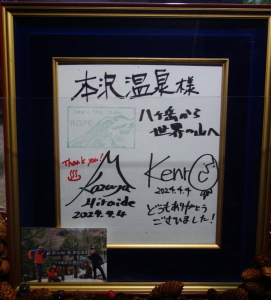 本沢温泉様
八ヶ岳から
世界の山へ
Thank you!
Kazuya
Hiraide
2024.4.4
Kenro
2024.4.4
どうもありがとう
ございました!